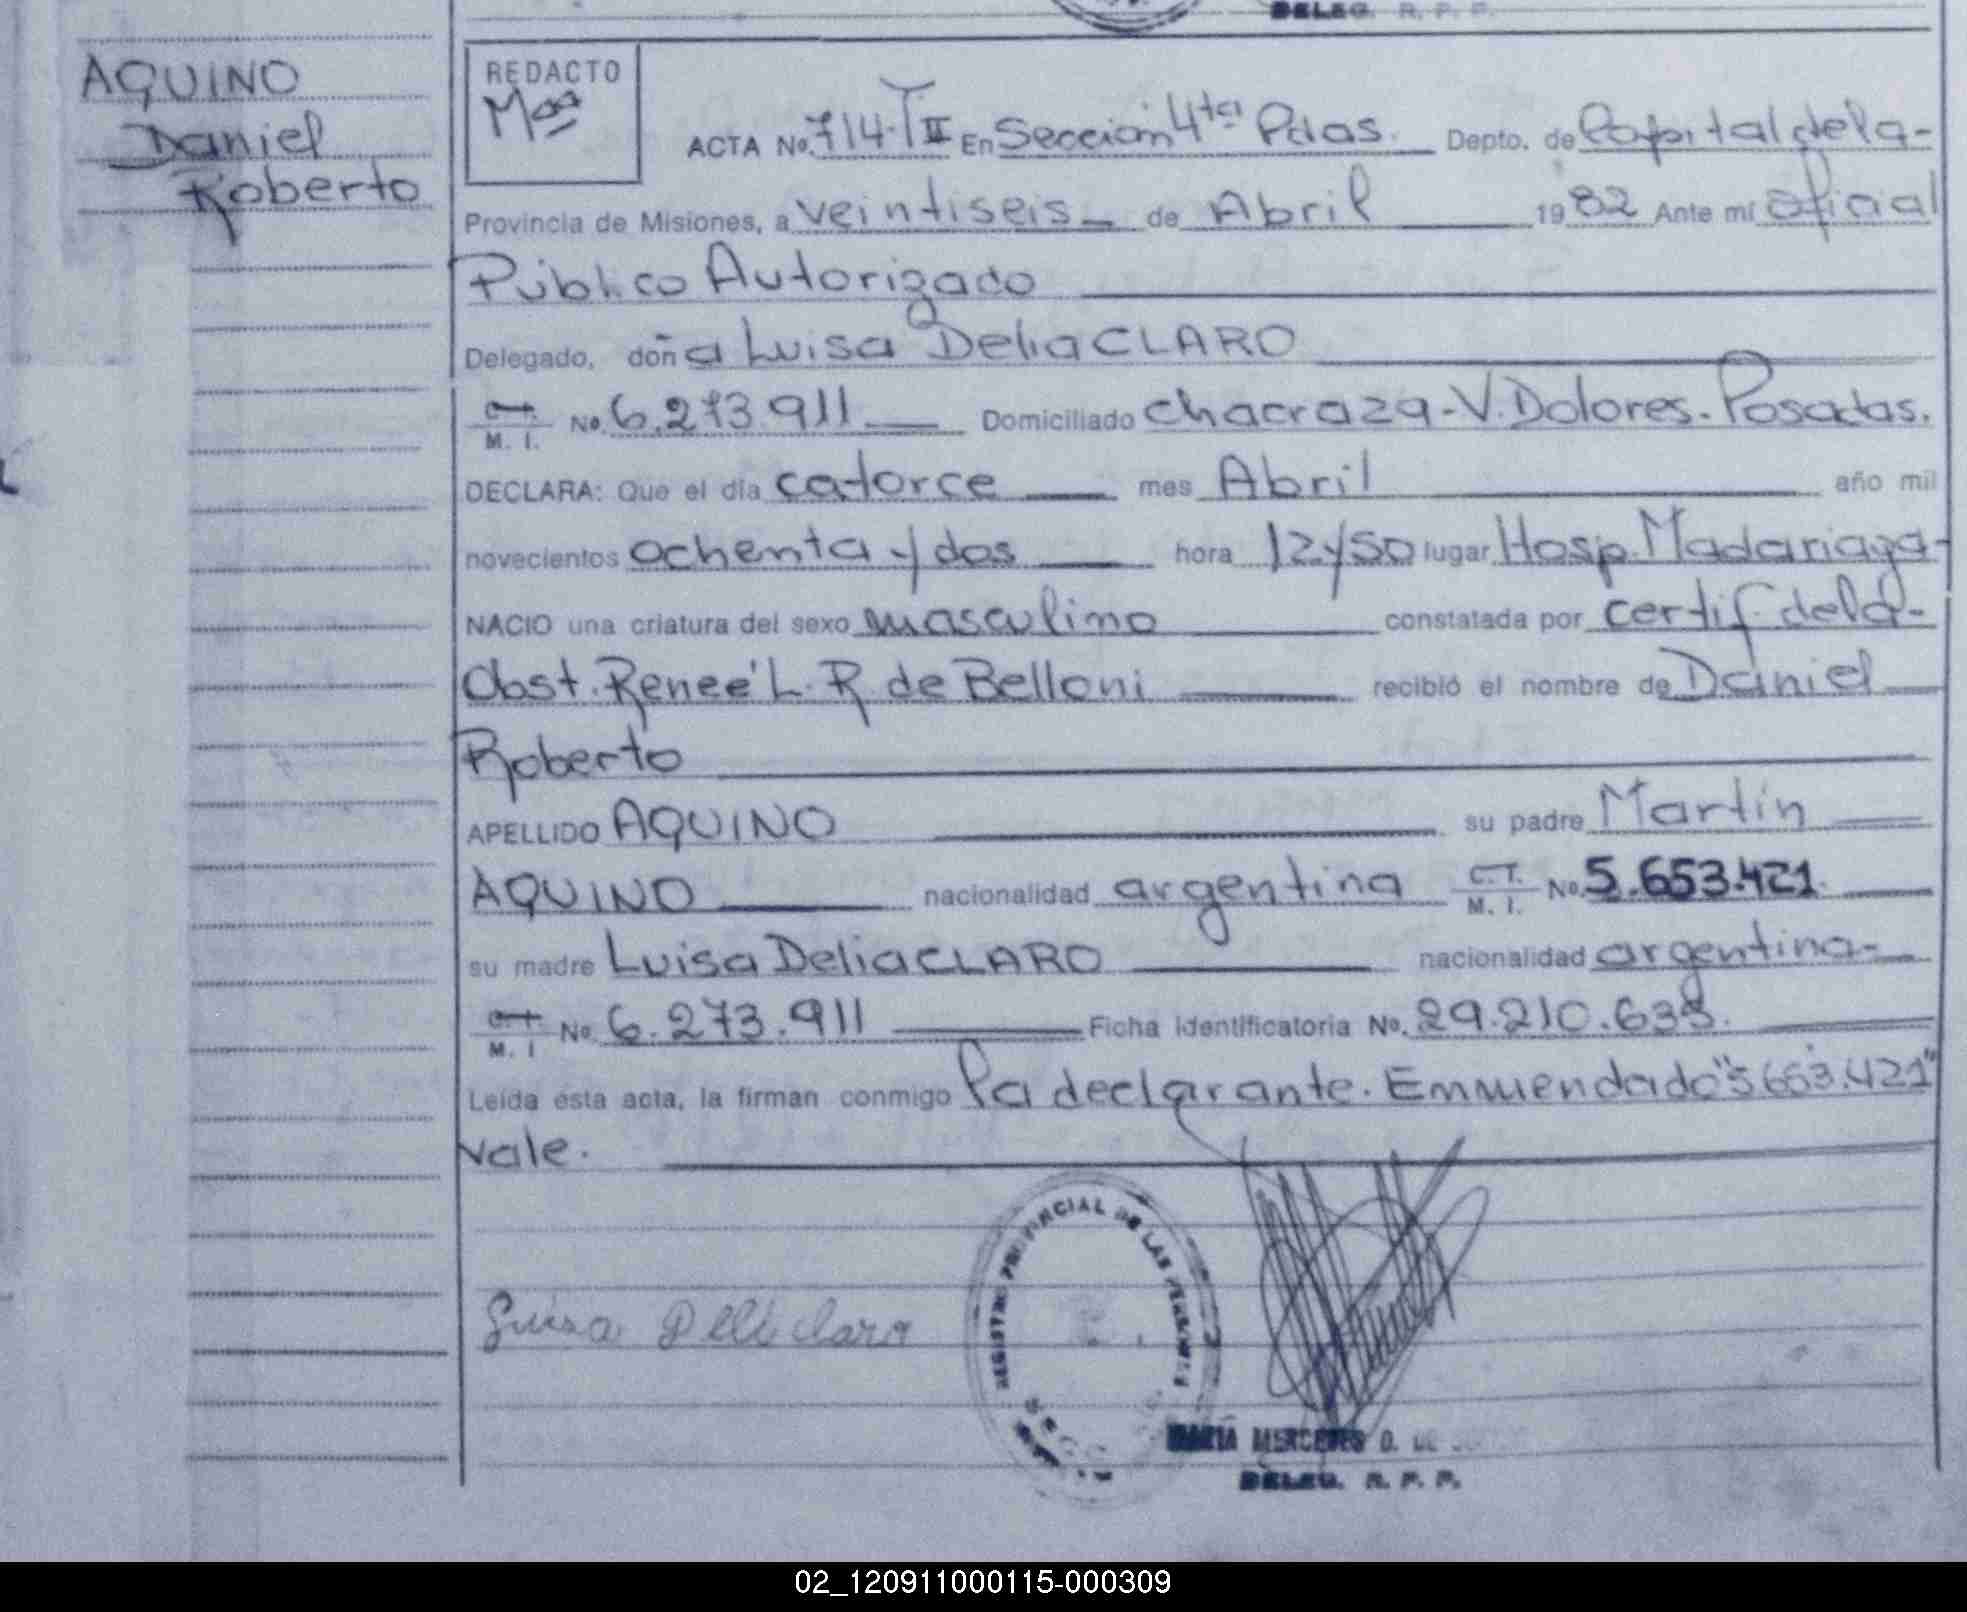 DELEG. R. P. P.
AQUINO
Daniel
Roberto
REDACTO
ACTA No. 714-T II En Sección 4ta Pdas. Depto. de Capital dela-
Provincia de Misiones, a veintiseis de Abril 1982 Ante mí oficial
Público Autorizado
Delegado, doña Luisa Delia CLARO
C.I. M. I. No. 6.273.911 Domiciliado chacra 29-V. Dolores. Posadas.
DECLARA: Que el día catorce mes Abril año mil
novecientos ochenta y dos hora 12y50 lugar Hosp. Madariaga-
NACIO una criatura del sexo masculino constatada por certif. dela-
Obst. Reneé L. R. de Belloni recibió el nombre de Daniel
Roberto
APELLIDO AQUINO su padre Martín
AQUINO nacionalidad argentina C.I. M. I. No. 5.653.421
su madre Luisa Delia CLARO nacionalidad argentina-
C.I. M. I. No. 6.273.911 Ficha identificatoria No. 29.210.638.
Leída ésta acta, la firman conmigo la declarante. Enmendado "5.653.421"
vale.
REGISTRO PROVINCIAL DE LAS PERSONAS
Luisa Deli claro
MARIA MERCEDES D. DE
DELEG. R. P. P.
02_120911000115-000309